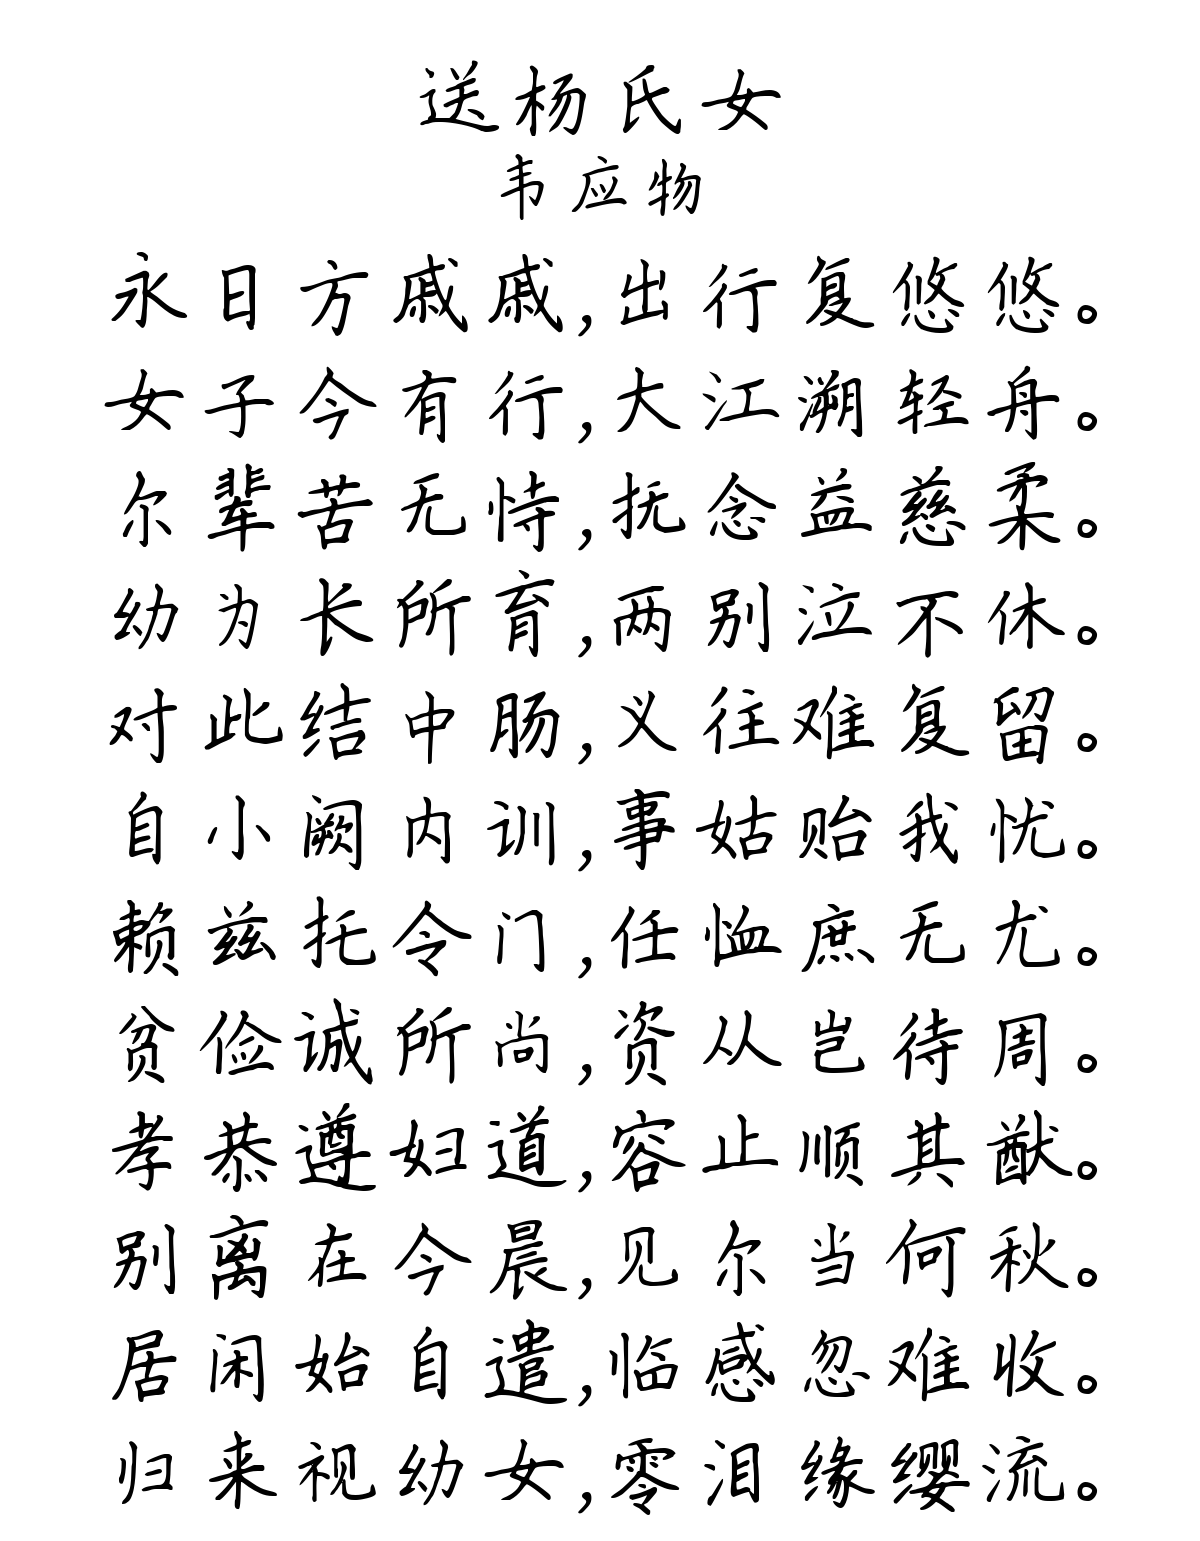 送杨氏女
韦应物
永日方戚戚,出行复悠悠。
女子今有行,大江溯轻舟。
尔辈苦无恃,抚念益慈柔。
幼为长所育,两别泣不休。
对此结中肠,义往难复留。
自小阙内训,事姑贻我忧。
赖兹托令门,任恤庶无尤。
贫俭诚所尚,资从岂待周。
孝恭遵妇道,容止顺其猷。
别离在今晨,见尔当何秋。
居闲始自遣,临感忽难收。
归来视幼女,零泪缘缨流。